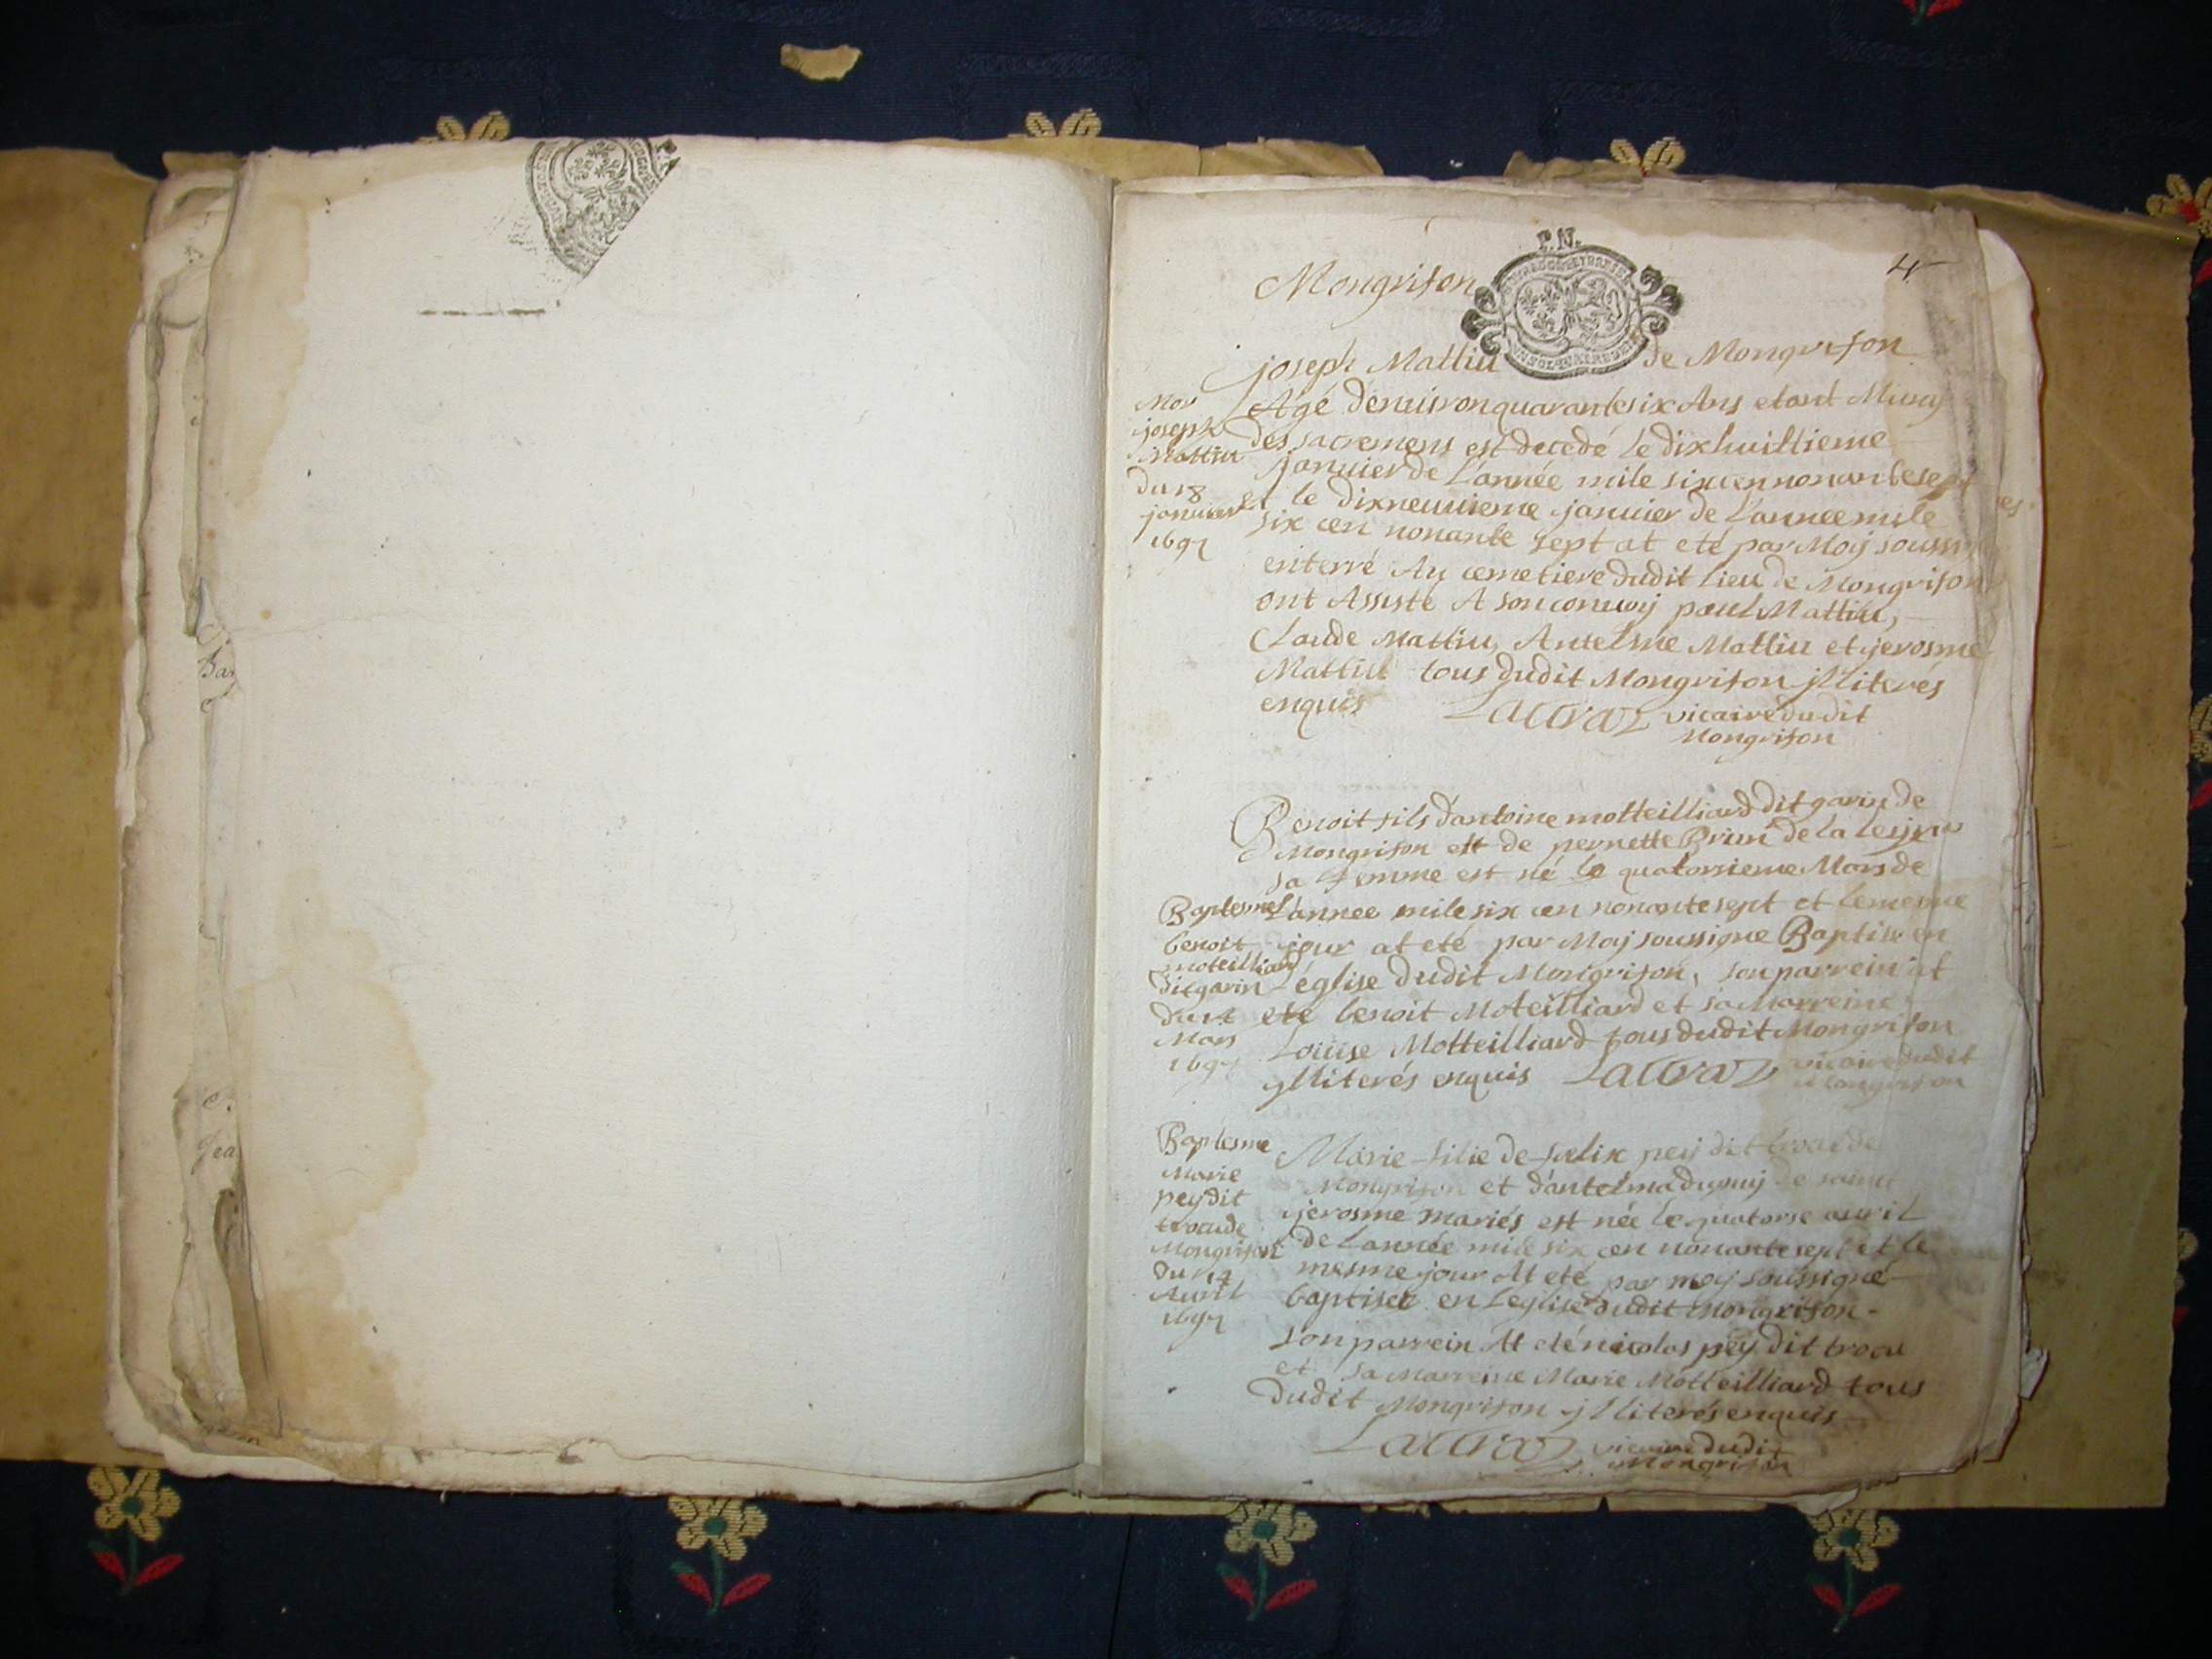 P.N.
4
Mongrifon
joseph Mattiu de Mongrifon
Agé denuiron quarante six Ans etant Muny
des sacremens est decedé le dixhuittieme
januier de L'année mile six cen nonante sept
Et le dixneuuieme januier de L'annee mile
six cen nonante sept at eté par Moy soussi
enterré Au cemetiere dudit Lieu de Mongrifon
ont Assisté A son conuoy paul Mattiu,
Claude Mattiu, Antelme Mattiu et jerosme
Mattiu tous dudit Mongrifon jlliterés
enquis Lacraz vicaire dudit
Mongrifon
Mor
joseph
Mattiu
du 18
januier
1697
Benoit fils d'antoine motteilliard dit garin de
Mongrifon et de pernette Brun de la
sa femme est né le quatorsieme Mars de
L'annee mile six cen nonante sept et le mesme
jour at eté par Moy soussigne Baptisé en
L'église dudit Mongrifon, son parrein at
eté benoit Moteilliard et sa Marreine
Louise Motteilliard tous dudit Mongrifon
jlliterés enquis Lacraz vicaire dudit
Mongrifon
Baptesme
benoit
moteilliard
dit garin
du 14
Mars
1697
Marie filie de fœlix pey dit trocu de
Mongrifon et d'antelma dupuy de saint
jerosme mariés est née le quatorse auril
de L'année mile six cen nonante sept et le
mesme jour At eté par moy soussigné
baptisée en L'eglise dudit Mongrifon
son parrein At eté nicolas pey dit trocu
et sa Marreine Marie Motteilliard tous
dudit Mongrifon jlliterés enquis
Lacraz vicaire dudit
Mongrifon
Baptesme
Marie
pey dit
trocu de
Mongrifon
du 14
Auril
1697